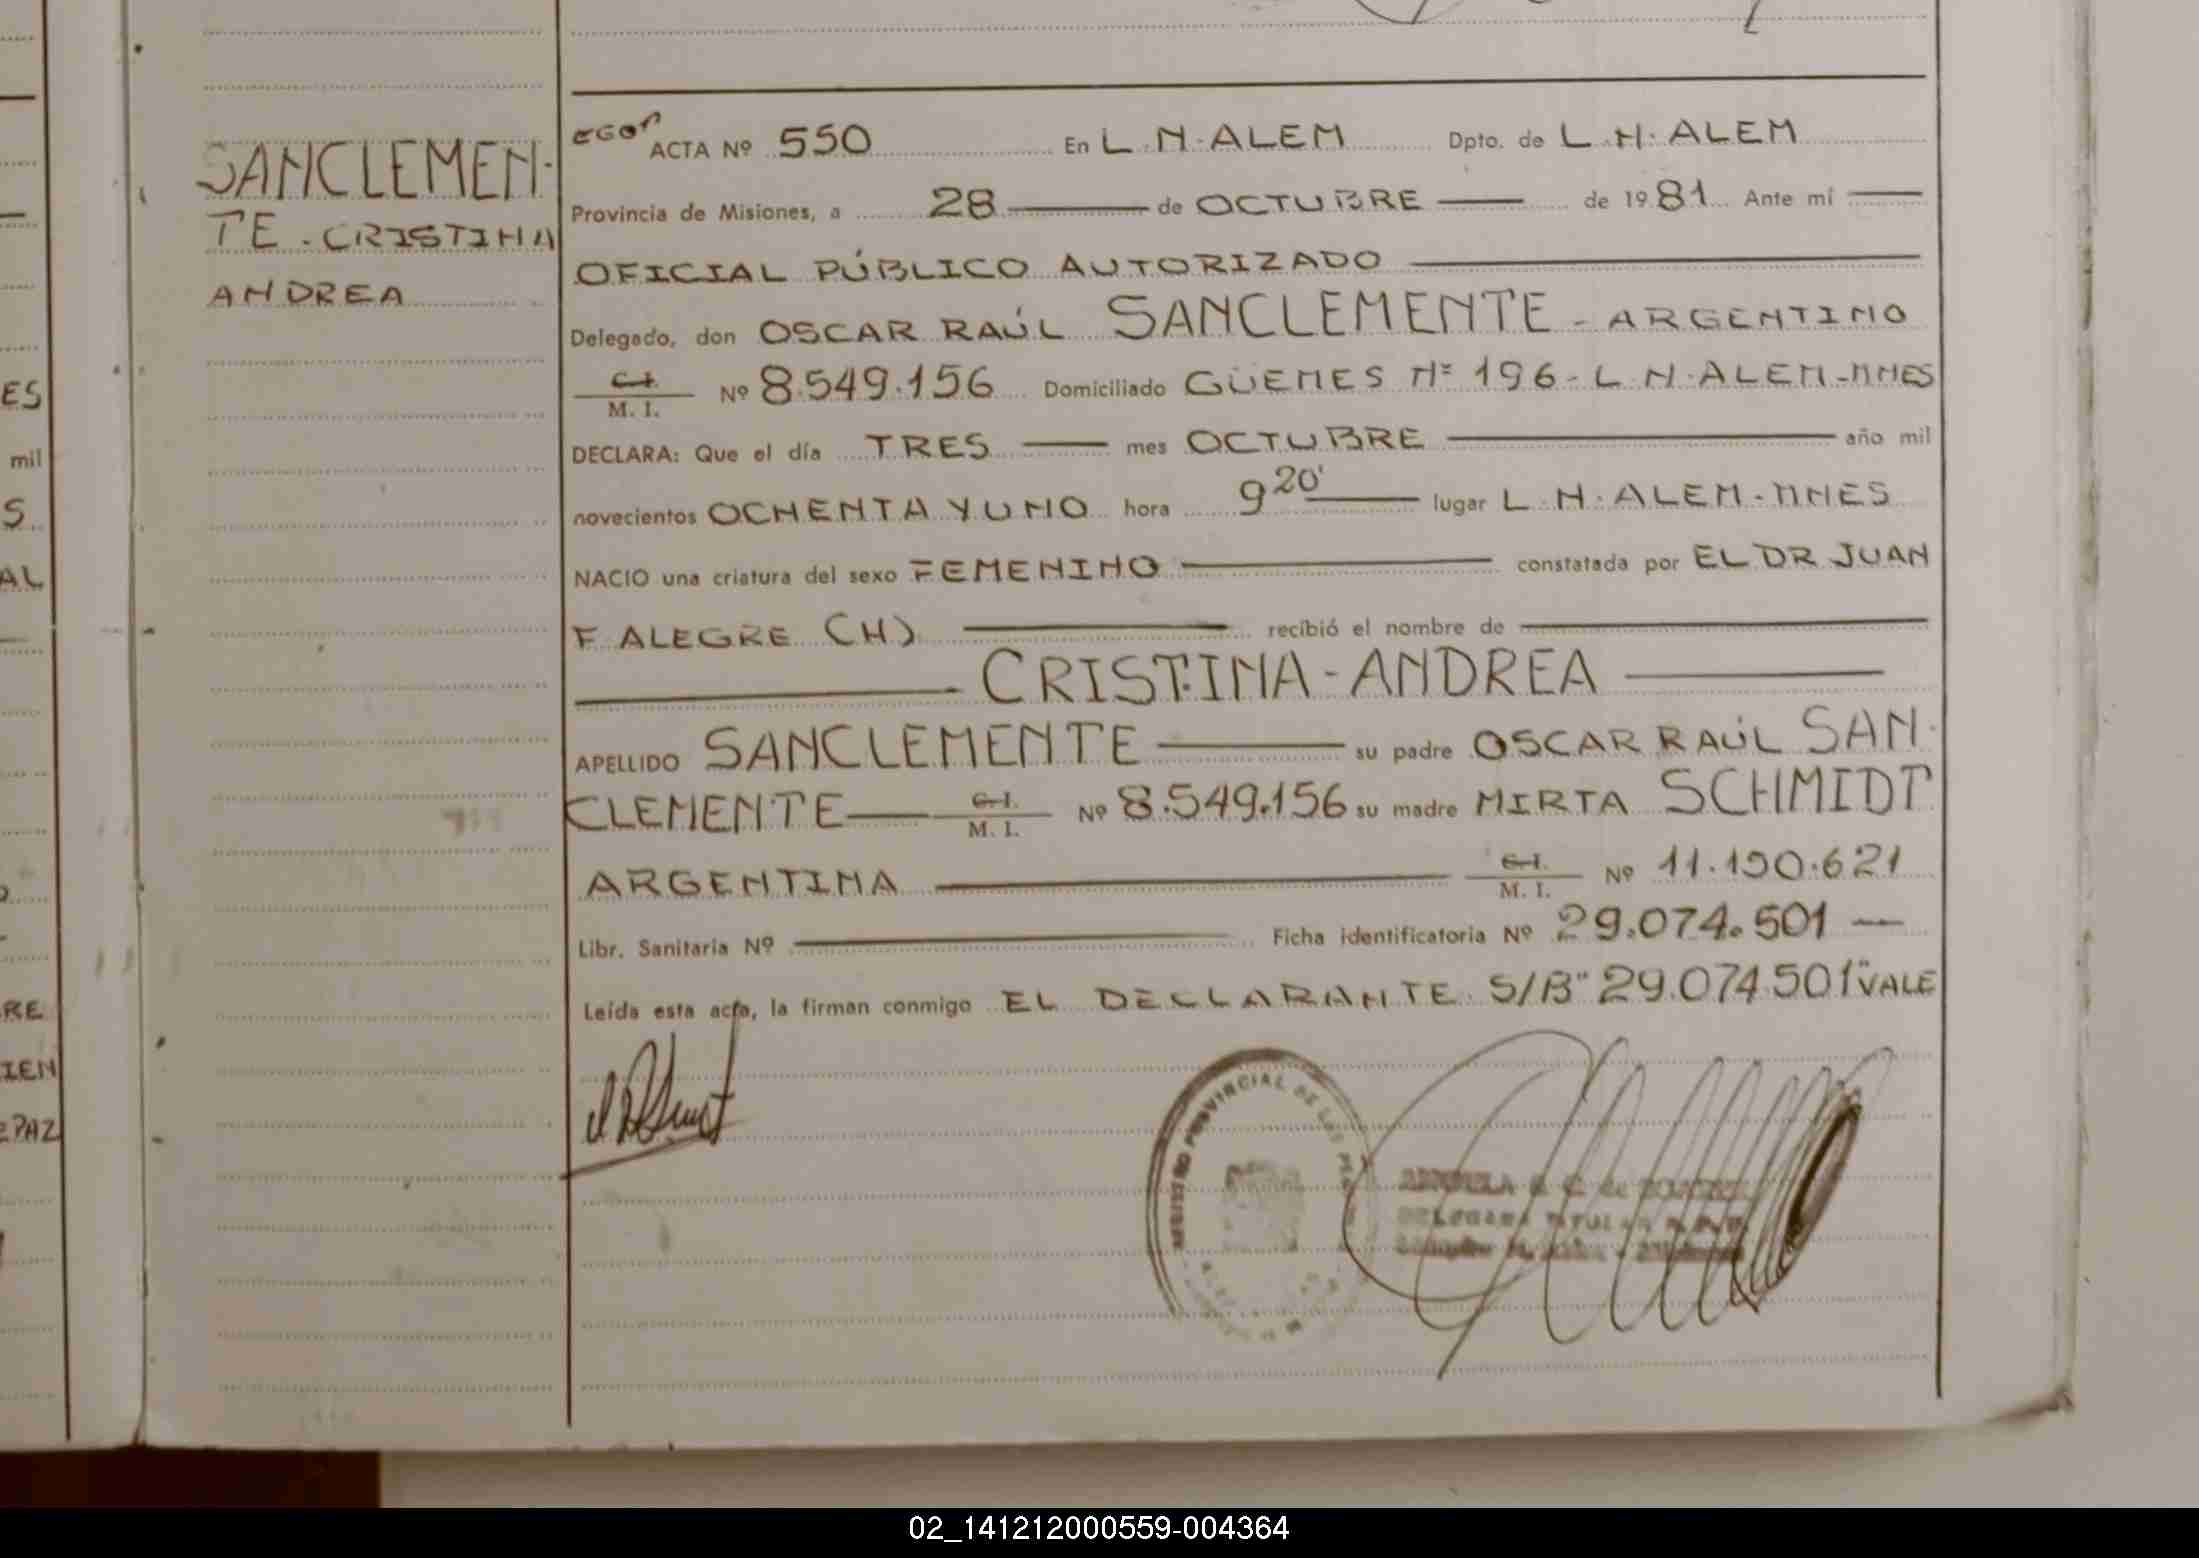 SANCLEMEN-
TE - CRISTINA
ANDREA
ACTA Nº 550 En L.N.ALEM Dpto. de L.N.ALEM
Provincia de Misiones, a 28 de OCTUBRE de 1981 Ante mi
OFICIAL PÚBLICO AUTORIZADO
Delegado, don OSCAR RAÚL SANCLEMENTE - ARGENTINO
C.I. M. I. Nº 8.549.156 Domiciliado GÜEMES Nº 196 - L.N.ALEM-MNES
DECLARA: Que el día TRES mes OCTUBRE año mil
novecientos OCHENTA Y UNO hora 9 20' lugar L.N.ALEM-MNES
NACIO una criatura del sexo FEMENINO constatada por EL DR JUAN
F. ALEGRE (H) recibió el nombre de
CRISTINA-ANDREA
APELLIDO SANCLEMENTE su padre OSCAR RAÚL SAN-
CLEMENTE C.I. M. I. Nº 8.549.156 su madre MIRTA SCHMIDT
ARGENTINA C.I. M. I. Nº 11.190.621
Libr. Sanitaria Nº Ficha identificatoria Nº 29.074.501
Leída esta acta, la firman conmigo EL DECLARANTE. S/B" 29.074.501" VALE
REGISTRO PROVINCIAL DE LAS
DELEGADA TITULAR
ES
mil
S
AL
RE
IEN
PAZ
02_141212000559-004364